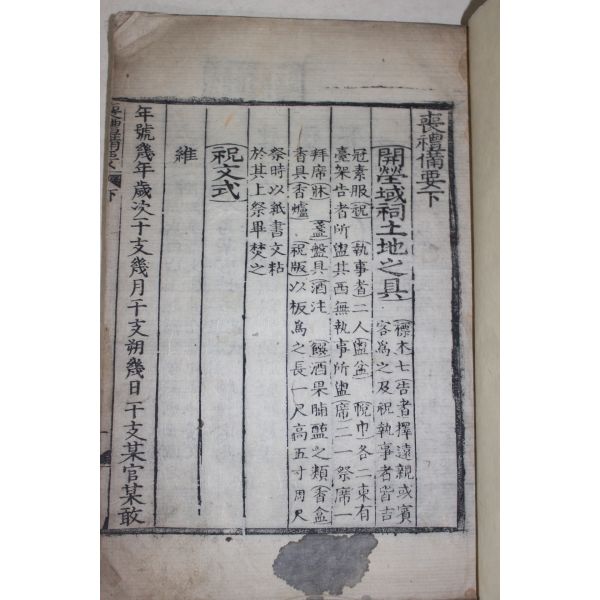 喪禮備要下
開塋域祠土地之具
標木七告者擇遠親或賓
客爲之及祝執事者皆吉
冠素服祝執事者二人盥盆帨巾各二東有
臺架告者所盥其西無執事所盥席二一祭席一
拜席牀盞盤具酒注饌酒果脯醢之類香盒
香具香爐祝版以板爲之長一尺高五寸周尺
祭時以紙書文粘
於其上祭畢焚之
祝文式
維
年號幾年歲次干支幾月干支朔幾日干支某官某敢
喪禮備要 下